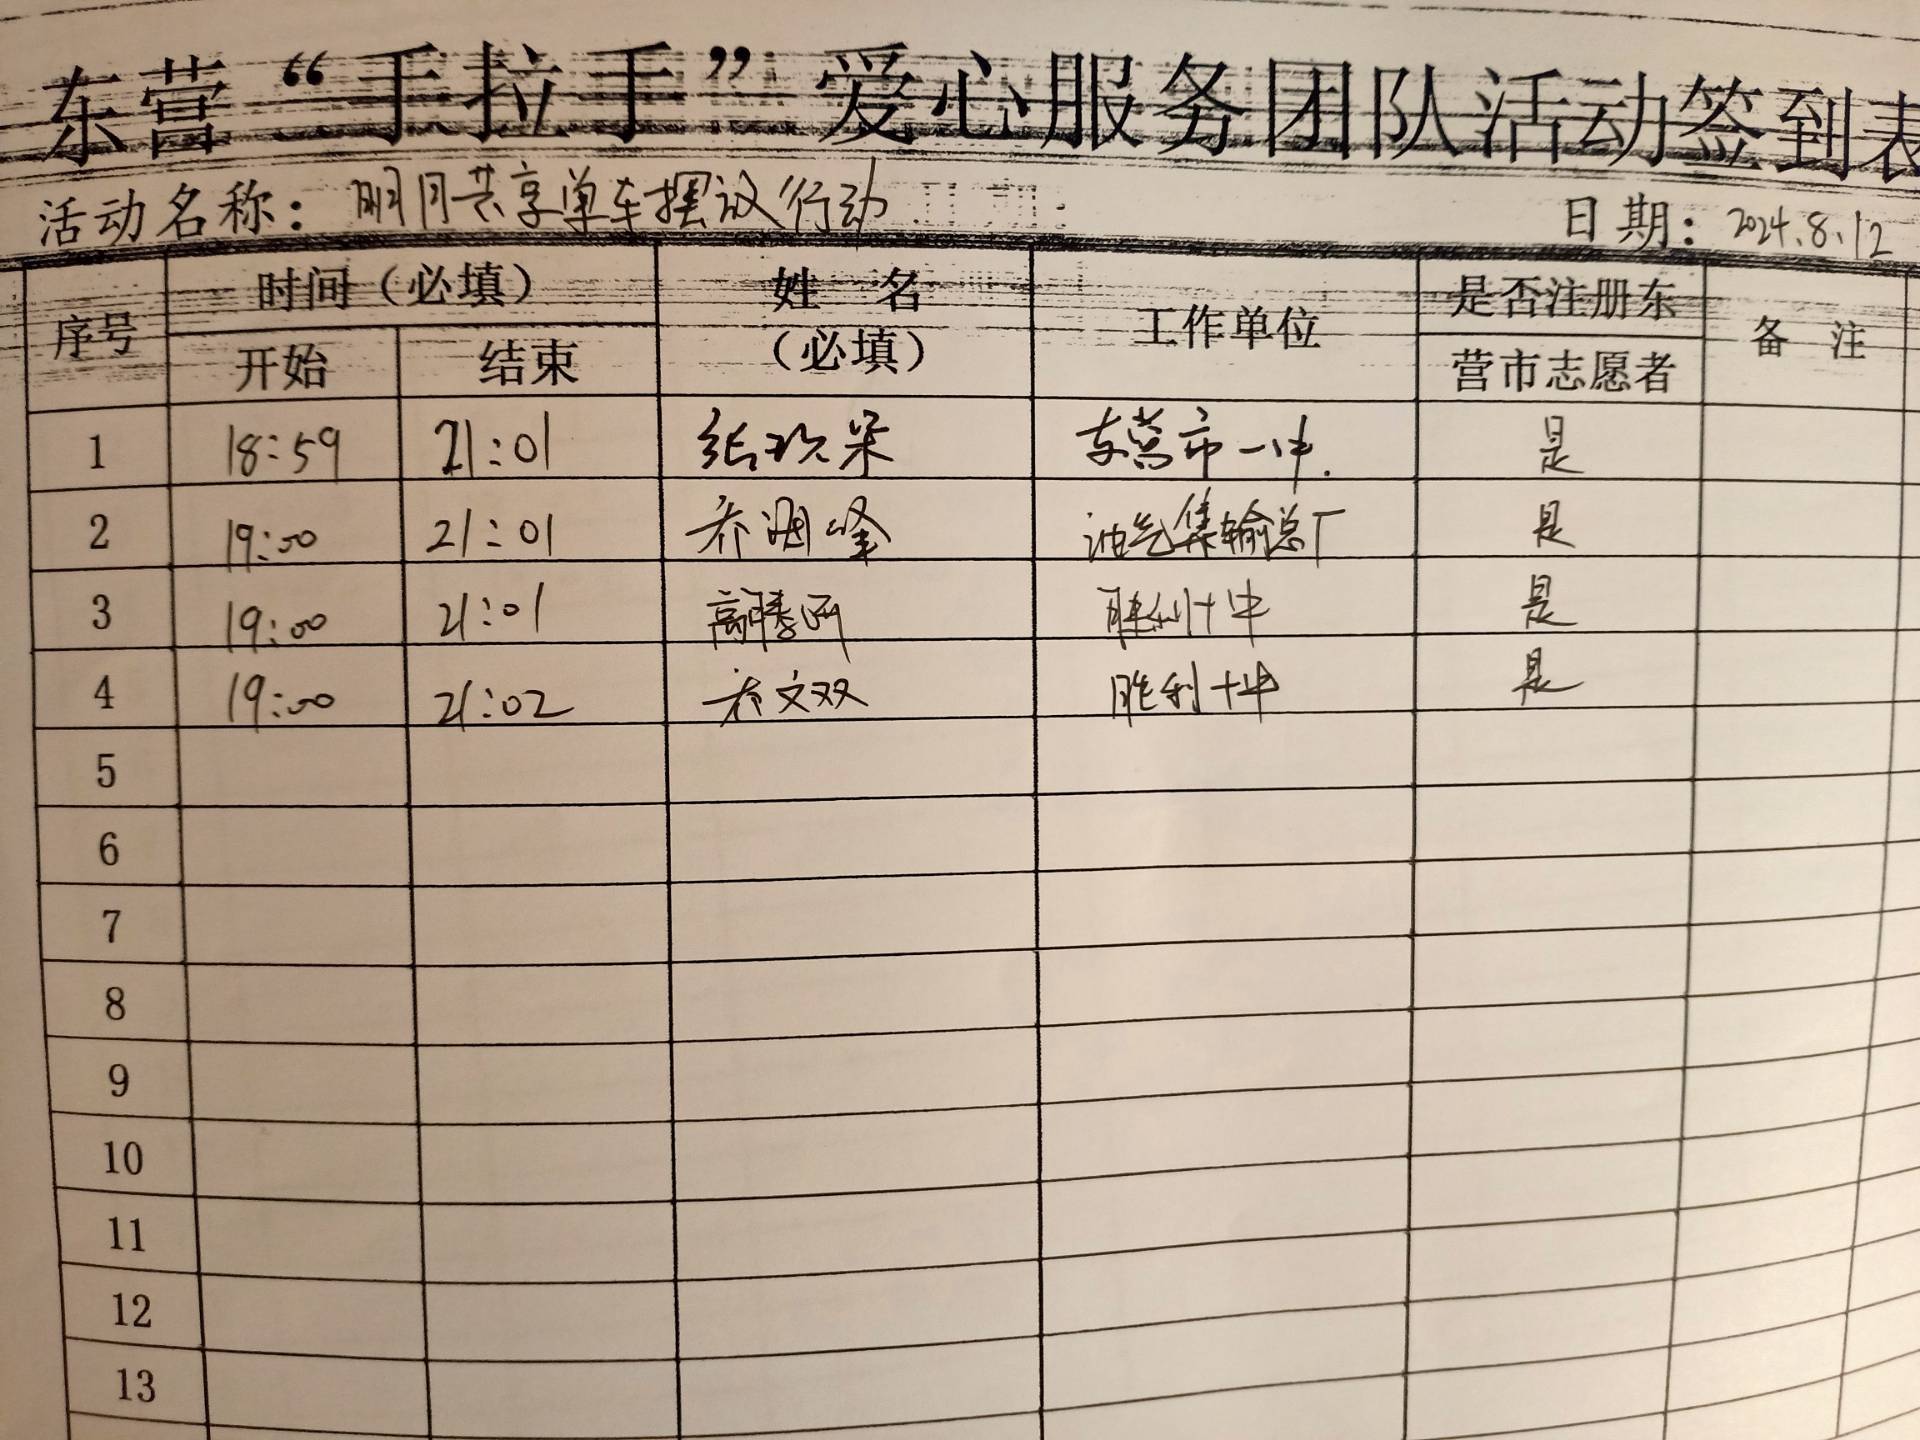 东营“手拉手”爱心服务团队活动签到表
活动名称：明月共享单车摆放行动 日期：2024.8.12
序号 时间（必填） 姓 名（必填） 工作单位 是否注册东营市志愿者 备 注
开始 结束
1 18:59 21:01 张玖朵 东营市一中. 是
2 19:00 21:01 乔洇峰 油气集输总厂 是
3 19:00 21:01 高腾 胜利十中 是
4 19:00 21:02 乔文双 胜利十中 是
5
6
7
8
9
10
11
12
13